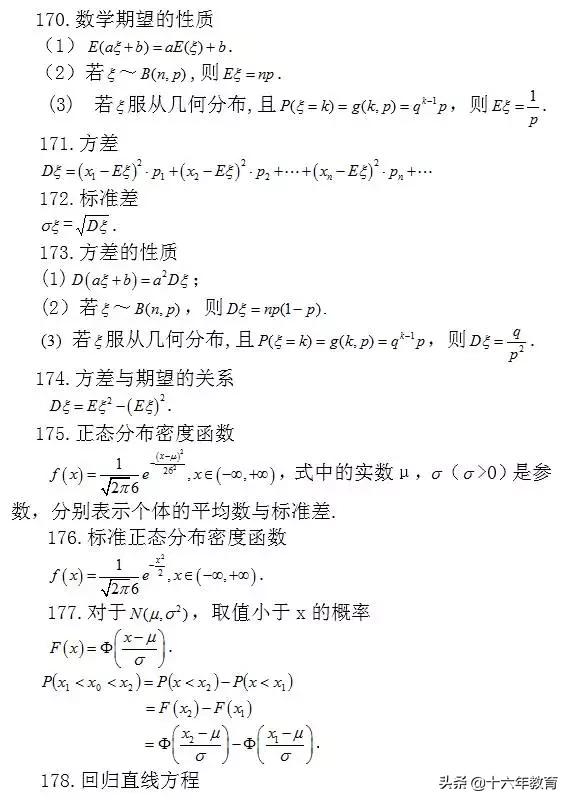 170.数学期望的性质
（1）E(aξ+b)=aE(ξ)+b.
（2）若ξ～B(n,p),则Eξ=np.
(3) 若ξ服从几何分布,且P(ξ=k)=g(k,p)=q^{k-1}p，则Eξ=\frac{1}{p}.
171.方差
Dξ=(x_1-Eξ)^2·p_1+(x_2-Eξ)^2·p_2+⋯+(x_n-Eξ)^2·p_n+⋯
172.标准差
σξ=\sqrt{Dξ}.
173.方差的性质
(1)D(aξ+b)=a^2Dξ；
(2）若ξ～B(n,p)，则Dξ=np(1-p).
(3) 若ξ服从几何分布,且P(ξ=k)=g(k,p)=q^{k-1}p，则Dξ=\frac{q}{p^2}.
174.方差与期望的关系
Dξ=Eξ^2-(Eξ)^2.
175.正态分布密度函数
f(x)=\frac{1}{\sqrt{2π}6}e^{-\frac{(x-μ)^2}{26^2}},x∈(-∞,+∞)，式中的实数μ，σ（σ>0）是参
数，分别表示个体的平均数与标准差.
176.标准正态分布密度函数
f(x)=\frac{1}{\sqrt{2π}6}e^{-\frac{x^2}{2}},x∈(-∞,+∞).
177.对于N(μ,σ^2)，取值小于x的概率
F(x)=Φ(\frac{x-μ}{σ}).
P(x_1<x_0<x_2)=P(x<x_2)-P(x<x_1)
=F(x_2)-F(x_1)
=Φ(\frac{x_2-μ}{σ})-Φ(\frac{x_1-μ}{σ}).
178.回归直线方程
头条 @十六年教育